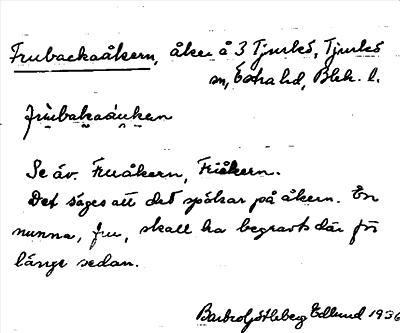 Frubackaåkern, åker å 3 Tjurkö, Tjurkö
sn, Östra hd, Blek. l.
frùbakaớukạn
Se äv. Fruåkern, Friåkern.
Det säges att det spökar på åkern. En
nunna, fru, skall ha begravts där för
länge sedan.
Edlund 1936